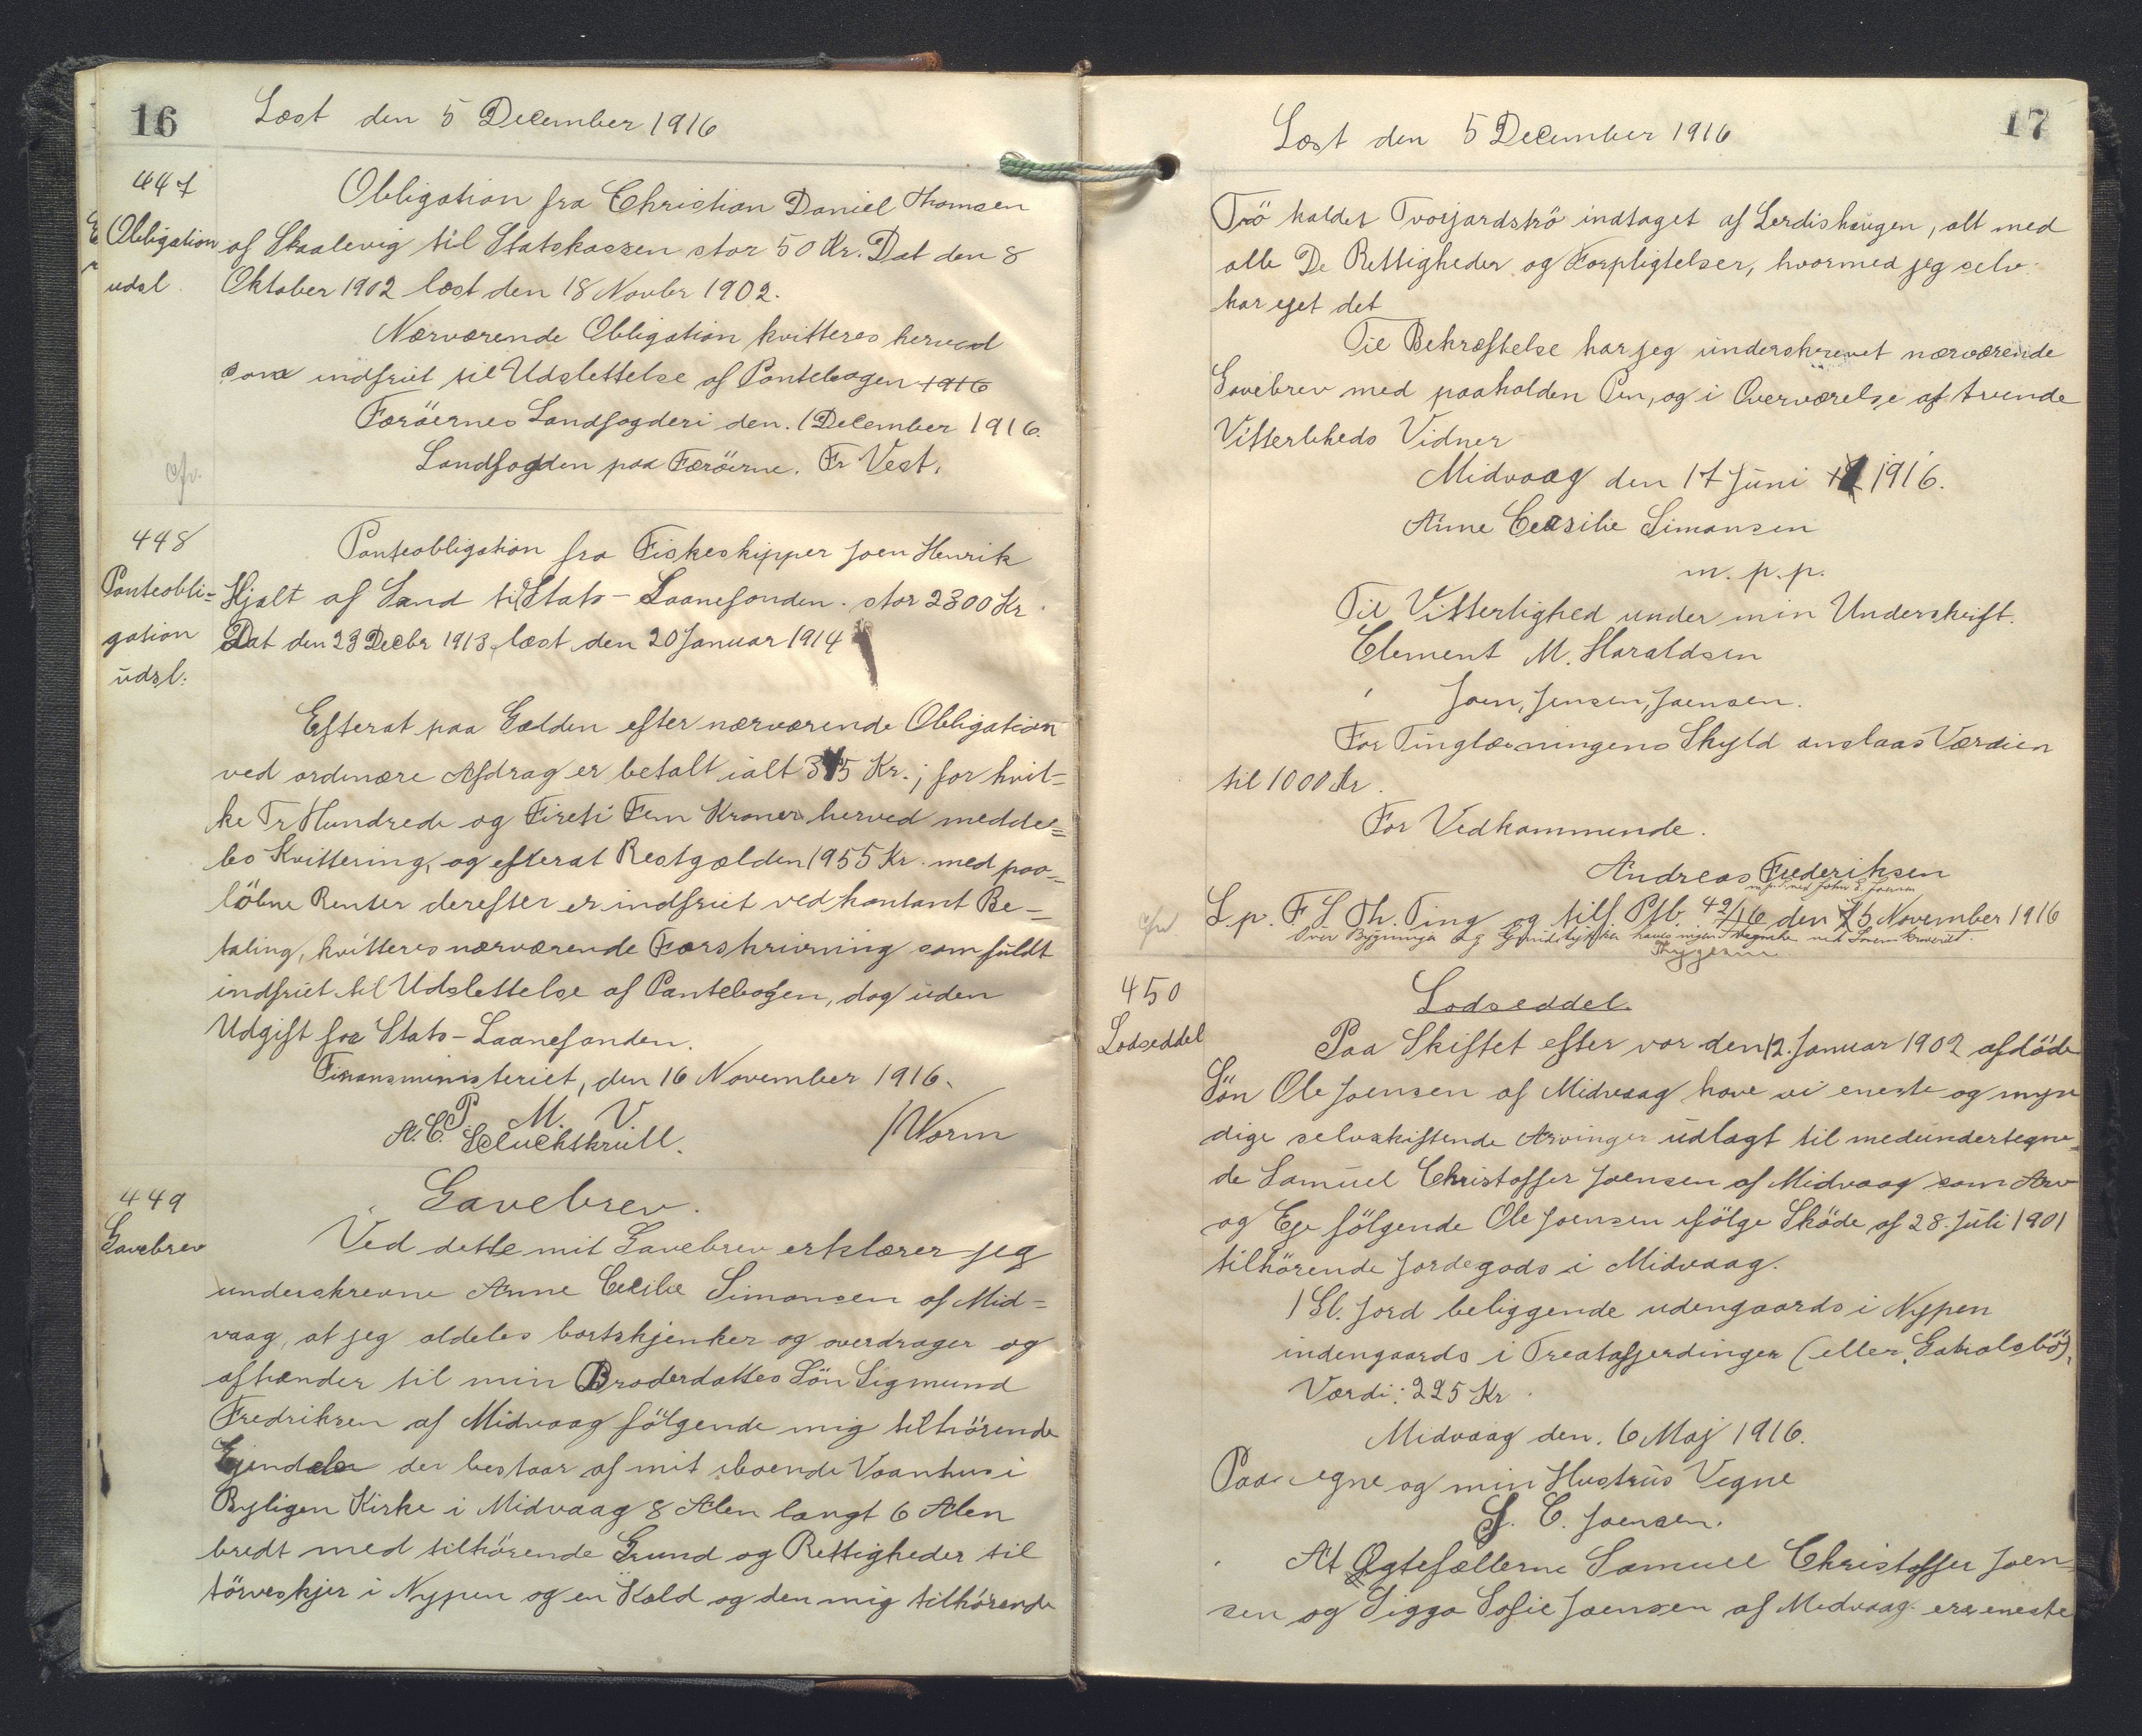 16
Læst den 5 December 1916
447
Obligation
udsl.
Obligation fra Christian Daniel Thomsen
af Skaalevig til Statskassen stor 50 Kr. Dat den 8
Oktober 1902 læst den 18 Novbr 1902.
Nærværende Obligation kvitteres herved
som indfriet til Udslettelse af Pantebogen 1916
Færöernes Landfogderi den. 1 December 1916.
Landfogden paa Færöerne. Fr Vest.
448
Panteobli=
gation
udsl.
Panteobligation fra Fiskeskipper Joen Henrik
Hjalt af Sand til Stats-Laanefonden. stor 2300 Kr.
Dat den 23 Decbr 1913, læst den 20 Januar 1914
Efterat paa Gælden efter nærværende Obligation
ved ordinære Afdrag er betalt ialt 345 Kr.; for hvil=
ke Tr Hundrede og Fireti Fem Kroner herved meddee=
les Kvittering, og efterat Restgælden 1955 Kr. med paa=
löbne Renter derefter er indfriet ved kontant Be=
taling, kvitteres nærværende Forskrivning som fuldt
indfriet til Udslettelse af Pantebogen, dog uden
Udgift for Stats-Laanefonden.
Finansministeriet, den 16 November 1916.
P. M. V.
A. C. /Worm
449
Gavebrev
Gavebrev.
Ved dette mit Gavebrev erklærer jeg
underskrevne Anne Cecilie Simonsen af Mid=
vaag, at jeg aldeles bortskjenker og overdrager og
afhænder til min Broderdatters Sön Sigmund
Fredriksen af Midvaag fölgende mig tilhörende
Ejendele der bestaar af mit iboende Vaanhus i
Byligen Kirke i Midvaag 8 Alen langt 6 Alen
bredt med tilhörende Grund og Rettigheder til
törveskjer i Nypen og en Kald og den mig tilhörende
17
Læst den 5 December 1916
Trö kaldet Tvorjardströ indtaget af Lerdishavgen, alt med
alle De Rettigheder og Forpligtelser, hvormed jeg selv
har ejet det
Til Bekræftelse har jeg underskrevet nærværende
Gavebrev med paaholden Pen, og i Overværelse af tvende
Vitterleheds Vidner
Midvaag den 17 Juni 1916.
Anne Ceasilie Simonsen
m. p. p.
Til Vitterlighed under min Underskrift.
Clement M. Haraldsen
Joen, Jensen, Joensen.
For Tinglæsningens Skyld anslaas Værdien
til 1000 Kr.
For Vedkommende.
Andreas Frederiksen
L. p. F S Th. Ting og tilf. Pfb. 49/16 den 15 November 1916
Over Bygninger og Grundstykker haves ingen
450
Lodseddel
Lodseddel.
Paa Skiftet efter vor den 12. Januar 1902 afdöde
Sön Ole Joensen af Midvaag have vi eneste og myn
dige selvskiftende Arvinger udlagt til medundertegne=
de Samuel Christoffer Joensen af Midvaag som Arv
og Eje fölgende Ole Joensen ifölge Sköde af 28. Juli 1901
tilhörende Jordegods i Midvaag.
1 Gl. Jord beliggende udengaards i Nypen
indengaards i Treatafjerdingen (eller Gatralsbö).
Værdi: 225 Kr.
Midvaag den. 6 Maj 1916.
Paa egne og min Hustrus Vegne
S. C. Joensen.
At Ægtefællerne Samuel Christoffer Joen=
sen og Sigga Sofie Joensen af Midvaag ere eneste